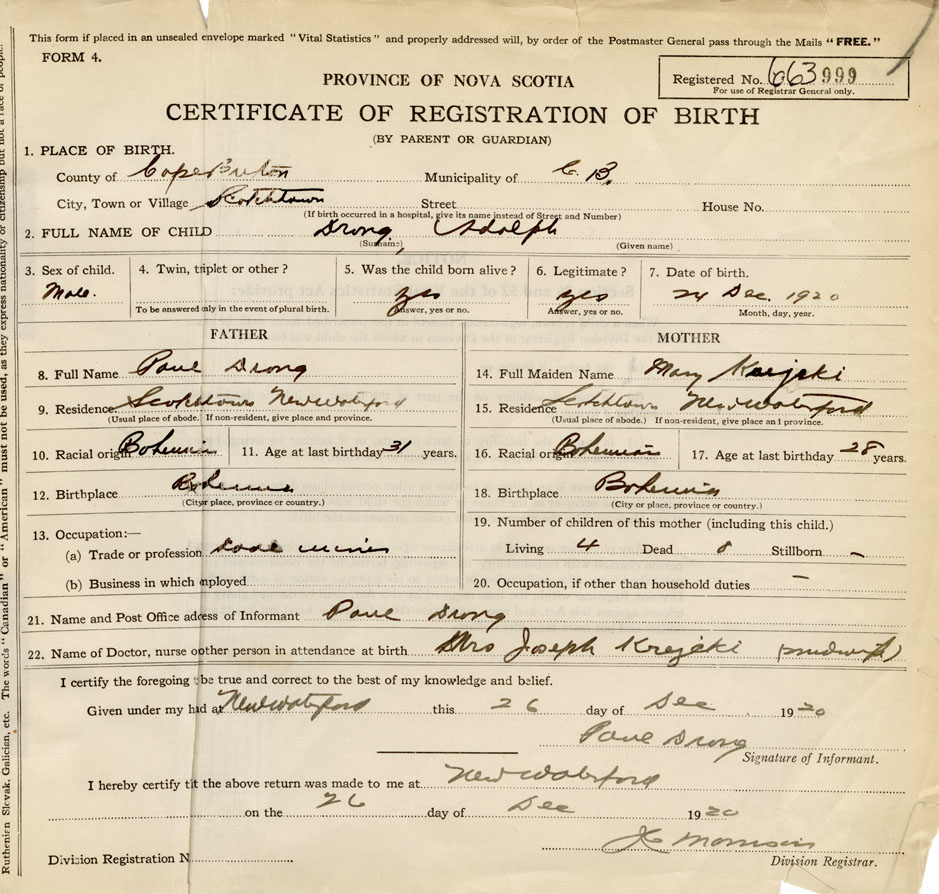 This form if placed in an unsealed envelope marked "Vital Statistics" and properly addressed will, by order of the Postmaster General pass through the Mails "FREE."
FORM 4.
Registered No. 663999
For use of Registrar General only.
PROVINCE OF NOVA SCOTIA
CERTIFICATE OF REGISTRATION OF BIRTH
(BY PARENT OR GUARDIAN)
1. PLACE OF BIRTH.
County of Cape Breton Municipality of C. B.
City, Town or Village Scotchtown Street House No.
(If birth occurred in a hospital, give its name instead of Street and Number)
2. FULL NAME OF CHILD Drong, Adolph
(Surname) (Given name)
3. Sex of child. 4. Twin, triplet or other? 5. Was the child born alive? 6. Legitimate? 7. Date of birth.
Male. yes yes 24 Dec. 1920
To be answered only in the event of plural birth. Answer, yes or no. Answer, yes or no. Month, day, year.
FATHER MOTHER
8. Full Name Paul Drong 14. Full Maiden Name Mary Krejcki
9. Residence Scotchtown New Waterford 15. Residence Scotchtown New Waterford
(Usual place of abode. If non-resident, give place and province. (Usual place of abode.) If non-resident, give place and province.
10. Racial origin Bohemian 11. Age at last birthday 31 years. 16. Racial origin Bohemian 17. Age at last birthday 28 years.
12. Birthplace Bohemia 18. Birthplace Bohemia
(City or place, province or country.) (City or place, province or country.)
13. Occupation:— 19. Number of children of this mother (including this child.)
(a) Trade or profession miner Living 4 Dead Stillborn –
(b) Business in which mployed 20. Occupation, if other than household duties –
21. Name and Post Office adress of Informant Paul Drong
22. Name of Doctor, nurse other person in attendance at birth Mrs Joseph Krejcki (midwife)
I certify the foregoing be true and correct to the best of my knowledge and belief.
Given under my hd at New Waterford this 26 day of Dec 1920
Paul Drong
Signature of Informant.
I hereby certify tt the above return was made to me at New Waterford
on the 26 day of Dec 1920
Morrison
Division Registration N Division Registrar.
Ruthenirn Slovak, Galician, etc. The words "Canadian" or "American" must not be used, as they express nationality or citizenship but not a race of people.